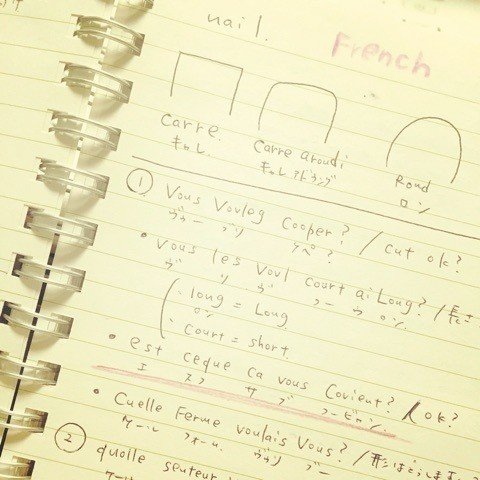 nail.
French
Carre.
キャレ
Carre aroudi
キャレ アドゥング
Roud
ロン
① Vous Voulog Cooper? / cut ok?
ヴゥー ブリ クペ?
・Vous les Voul court ai Long? / 長さ
ヴ リ ブ クー ウ ロン
・long = Long
ロン
・Court = short
・est ceque ca vous Covient? / ok?
エ スク サ ブ コービヤン.
・Cuelle Ferme voulais Vous? / 形はどうしま
ケール フォーム. ヴゥリ ブー
② quolle seuteur
ケール